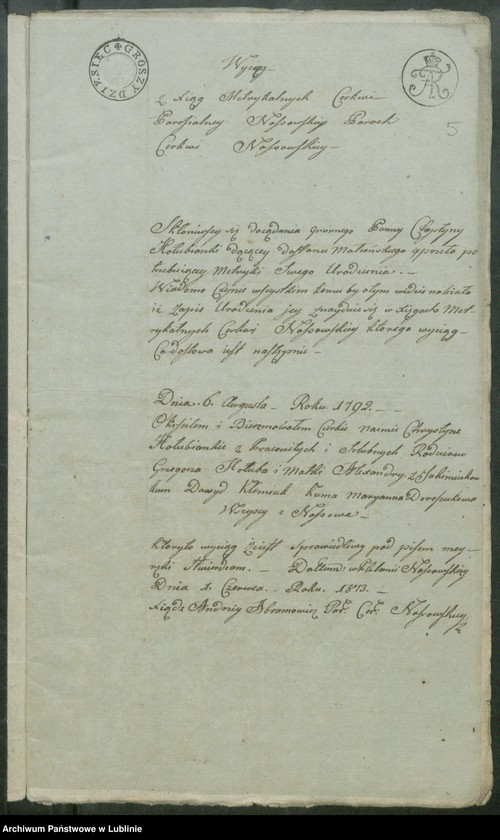 DZIESIĘC GROSZY
5
Wyciąg
z Xiąg Metrykalnych Cerkwi
Parafialney Nossowskiey Paroch
Cerkwi Nossowskiey
Skłoniwszy się do żądania Panny Chrystyny
Hołubianki dążącey do Stanu Małżeńskiego a przeto po
trzebuiącey Metryki Swego Urodzenia. —
Wiadomo Czynię wszystkim komu by o tym wiedzieć należało
iż Zapis Urodzenia jey znayduie się w Xięgach Met
rykalnych Cerkwi Nossowskiey którego wyciąg
Co do słowa iest następnie —
Dnia 6. Augusta — Roku 1792. —
Okrzciłem i Bierzmowałem Curkę imię Chrystynę
Hołubiankę z Pracowitych i Szlubnych Rodziców
Grzegorza Hołuba i Matki Alexandry z
kum Dawyd Klimiuk Kuma Maryanna Doroszukowa
Wszyscy z Nossowa —
Który to wyciąg iż iest Sprawiedliwy podpisem mey
ręki stwierdzam. — Dattum: w Plebanii Nossowskiey
Dnia 1. Czerwca. Roku. 1813. —
Xiądz Andrzey Abramowicz Par. Cer. Nossowskiey
Archiwum Państwowe w Lublinie